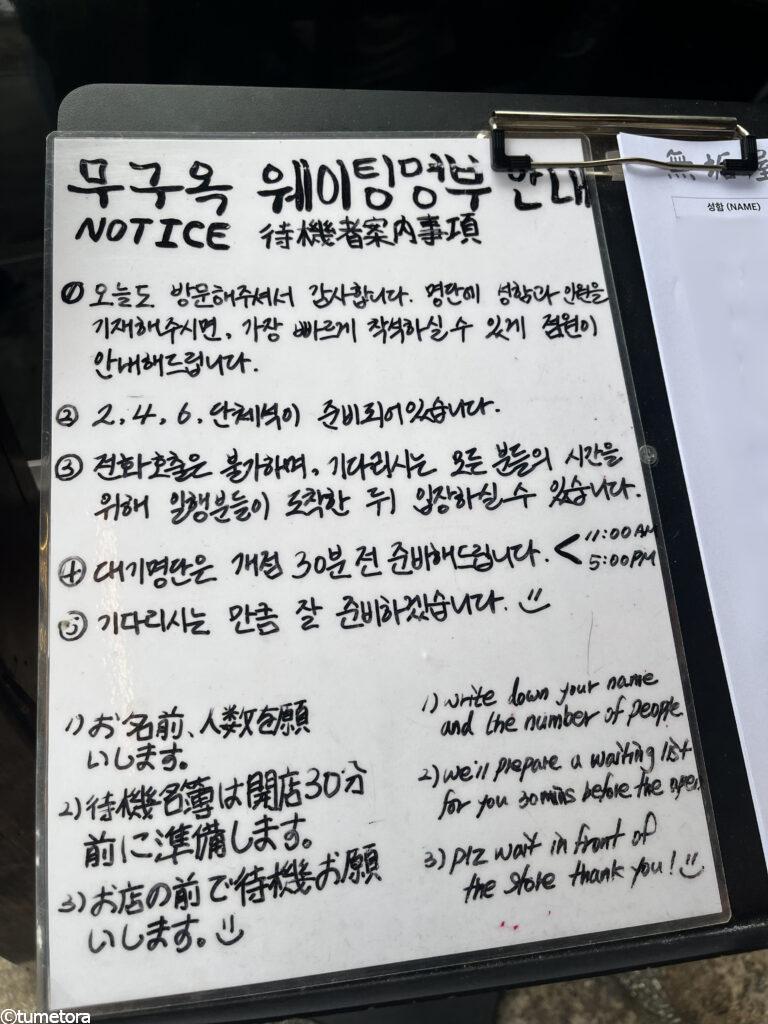 무구옥 웨이팅명부 안내
NOTICE 待機者案内事項
① 오늘도 방문해주셔서 감사합니다. 명단에 성함과 인원을
기재해주시면, 가장 빠르게 착석하실 수 있게 점원이
안내해드립니다.
② 2, 4, 6, 단체석이 준비되어있습니다.
③ 전화호출은 불가하며, 기다리시는 모든 분들의 시간을
위해 일행분들이 도착한 뒤 입장하실 수 있습니다.
④ 대기명단은 개점 30분 전 준비해드립니다. < 11:00 AM
5:00 PM
기다리시는 만큼 잘 준비하겠습니다.
1) お名前、人数を願
いします。
2) 待機名簿は開店30分
前に準備します。
3) お店の前で待機お願
いします。
1) write down your name
and the number of people
2) we'll prepare a waiting list
for you 30mins before the open
3) plz wait in front of
the store thank you!
無垢屋
성함 (NAME)
©tumetora